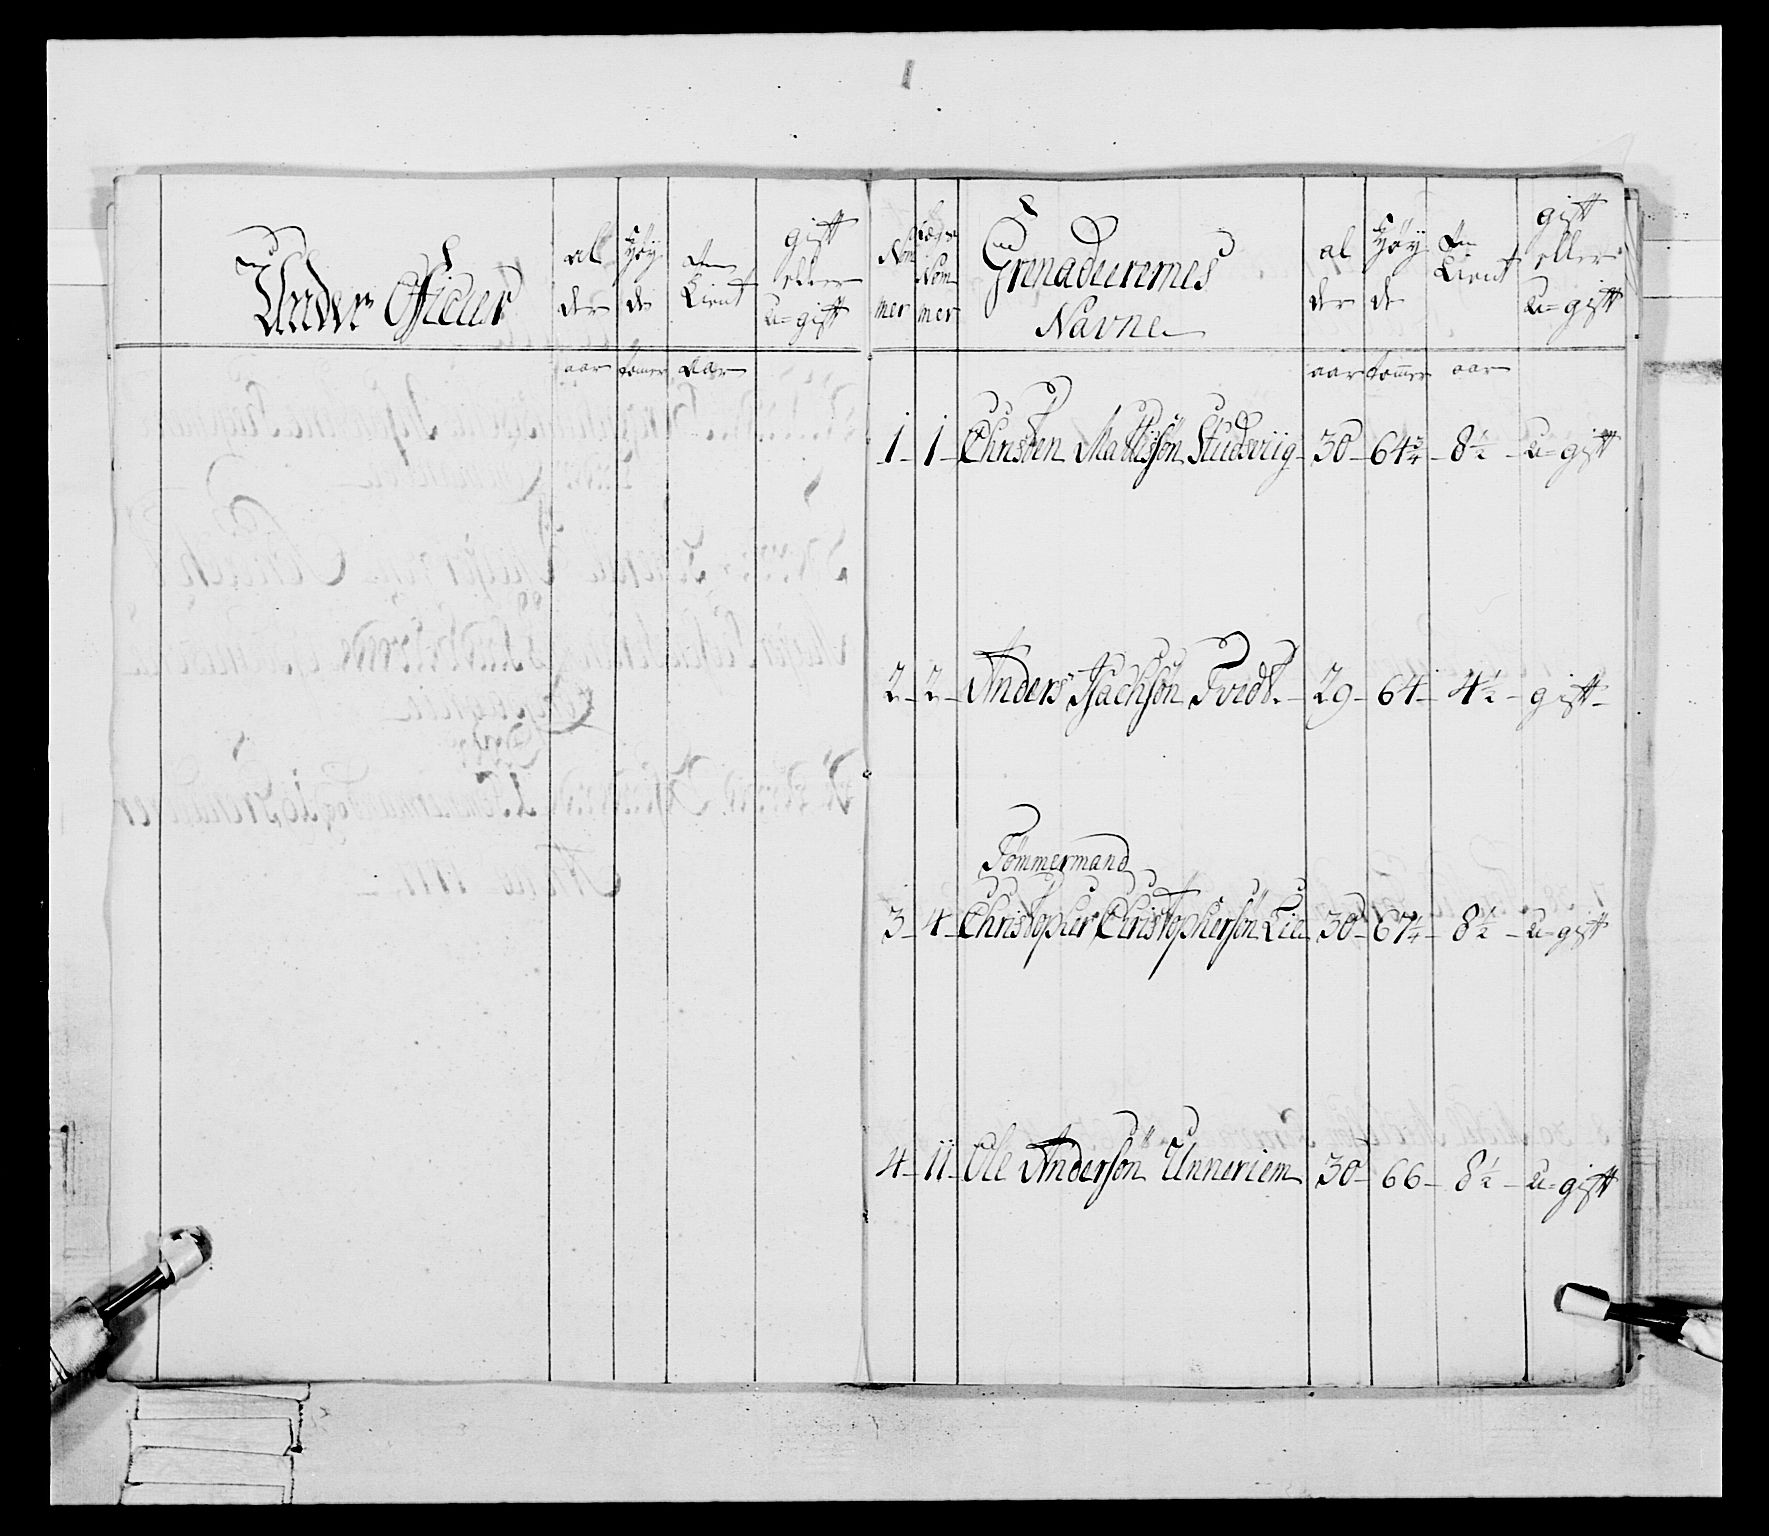 Under Officier
al
der
Høy
de
tient
gift
eller
u=gift
aar tomer aar
Nom
mer
Nom
mer
Grenadeurernes
Navne
al
der
Høy
de
tient
gift
eller
u=gift
aar tommer aar
1 - 1 - Christen Mathisøn Studsviig - 30 - 64 3/4 - 8 1/2 - u=gift
2 - 2 - Anders Isachsøn Tvedt - 29 - 64 - 4 1/2 - gift -
Tømmermand
3 - 4 - Christopher Christophersøn Lie 30 - 67 1/4 - 8 1/2 - u=gift
4 - 11 - Ole Andersøn Unneriem 30 - 66 - 8 1/2 - u=gift